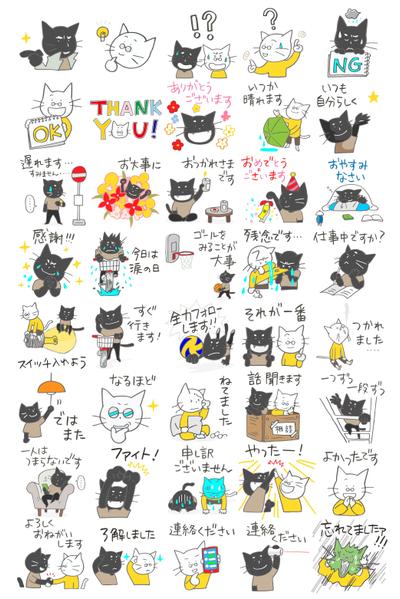 !?
?
NG
OK
THANK
YOU!
ありがとう
ございます
いつか
晴れます
いつも
自分らしく
遅れます…
すみません…
お大事に
おつかれさま
です
おめでとう
ございます
おやすみ
なさい
感謝!!!
今日は
涙の日
ゴールを
みることが
大事
残念です…
仕事中ですか?
スイッチ入れよう
すぐ
行き
ます!
全力フォロー
します!!
それが一番
つかれ
ました
では
また
なるほど
ねてました
話聞きます
相談
一つずつ
一段ずつ
一人は
つまらないです
ファイト!
申し訳
ございません
やったー!
よかったです
よろしく
おねがい
します
了解しました
連絡ください
連絡ください
忘れてましたァ
!!!